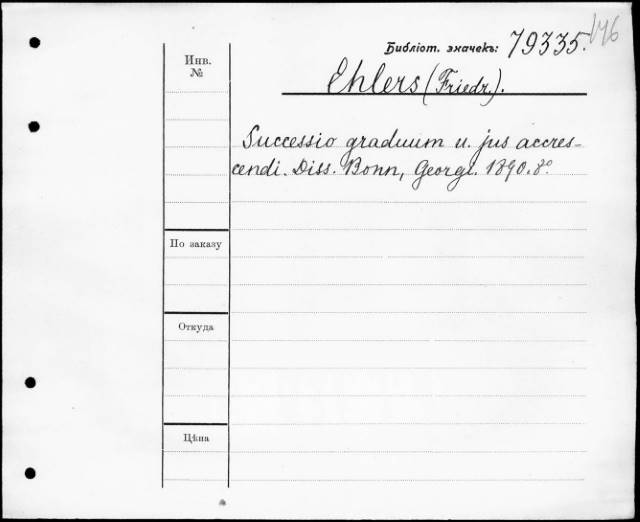 Библіот. значекъ: 79335. 146
Инв. №
Ehlers (Friedr.).
Successio graduum u. jus accres-
cendi. Diss. Bonn, Georgi. 1890. 8º
По заказу
Откуда
Цѣна